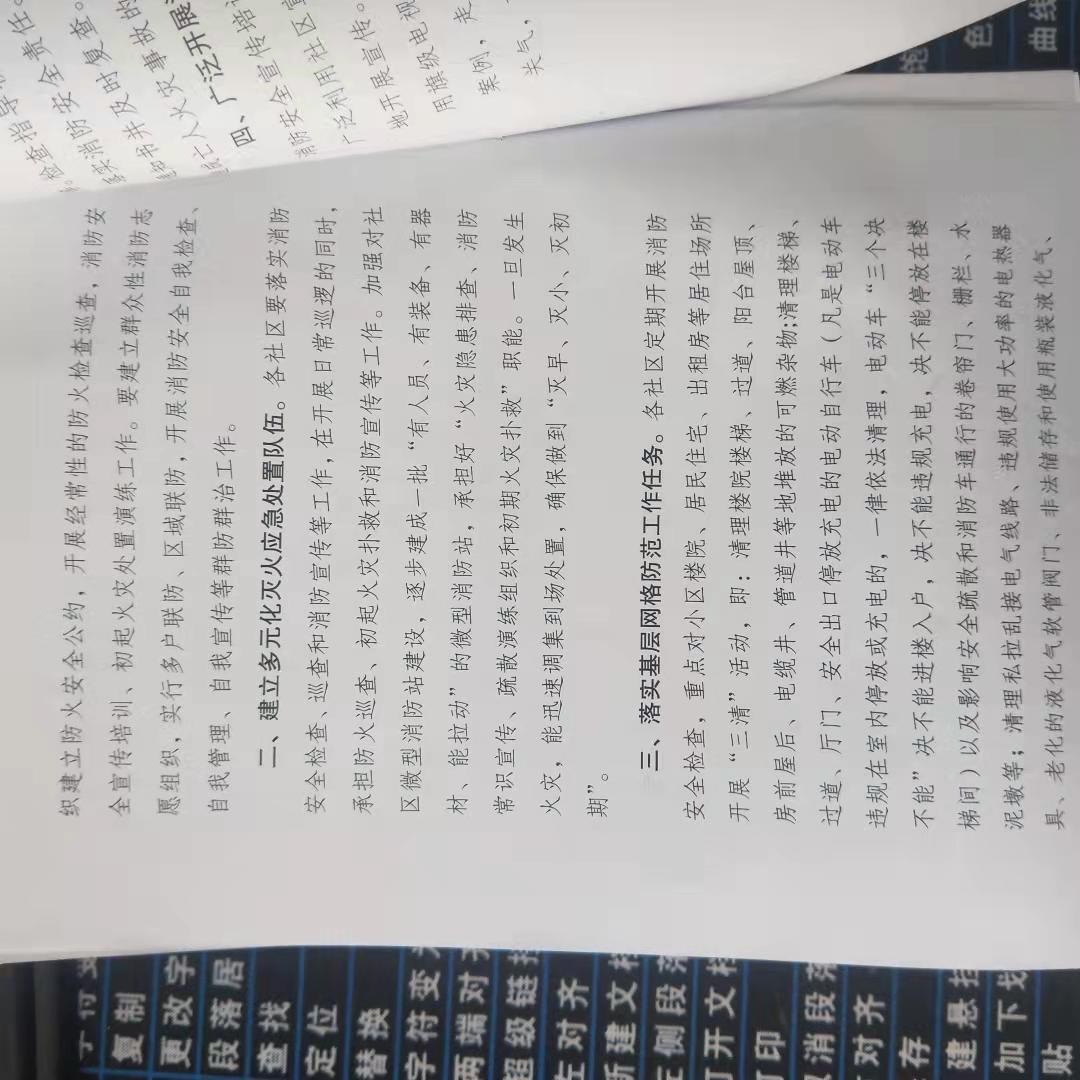 织建立防火安全公约，开展经常性的防火检查巡查，消防安
全宣传培训、初起火灾处置演练工作。要建立群众性消防志
愿组织，实行多户联防、区域联防，开展消防安全自我检查、
自我管理、自我宣传等群防群治工作。
二、建立多元化灭火应急处置队伍。各社区要落实消防
安全检查、巡查和消防宣传等工作，在开展日常巡逻的同时，
承担防火巡查、初起火灾扑救和消防宣传等工作。加强对社
区微型消防站建设，逐步建成一批“有人员、有装备、有器
材、能拉动”的微型消防站，承担好“火灾隐患排查、消防
常识宣传、疏散演练组织和初期火灾扑救”职能。一旦发生
火灾，能迅速调集到场处置，确保做到“灭早、灭小、灭初
期”。
三、落实基层网格防范工作任务。各社区定期开展消防
安全检查，重点对小区楼院、居民住宅、出租房等居住场所
开展“三清”活动，即：清理楼院楼梯、过道、阳台屋顶、
房前屋后、电缆井、管道井等地堆放的可燃杂物;清理楼梯、
过道、厅门、安全出口停放充电的电动自行车（凡是电动车
违规在室内停放或充电的，一律依法清理，电动车“三个决
不能”决不能进楼入户，决不能违规充电，决不能停放在楼
梯间）以及影响安全疏散和消防车通行的卷帘门、栅栏、水
泥墩等；清理私拉乱接电气线路、违规使用大功率的电热器
具、老化的液化气软管阀门、非法储存和使用瓶装液化气、
检查指导
实消防安全责任。
书并及时复查。
亡人火灾事故的
四、广泛开展
消防安全宣传培
广泛利用社区
地开展宣传。
用旗级电视
案例，走
关气，
复制
更改字
段落居
查找
定位
替换
字符变
两端对
超级链接
左对齐
新建文档
左侧段落
打开文档
打印
消段落
对齐
存
建悬挂
加下划
贴
色
曲线